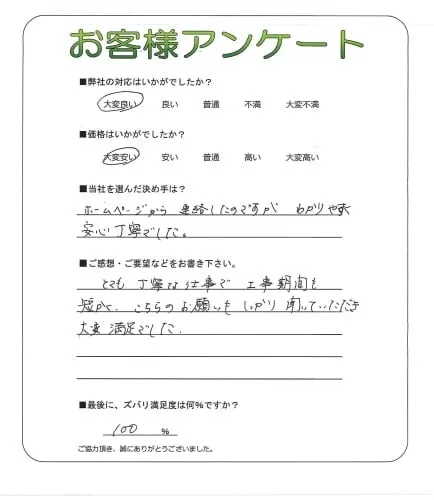 お客様アンケート
■弊社の対応はいかがでしたか？
大変良い 良い 普通 不満 大変不満
■価格はいかがでしたか？
大変安い 安い 普通 高い 大変高い
■当社を選んだ決め手は？
ホームページから 連絡したのですが わかりやすく
安心丁寧でした。
■ご感想・ご要望などをお書き下さい。
とても 丁寧な仕事で 工事期間も
短かく、こちらのお願いも しっかり 聞いていただき
大変満足でした。
■最後に、ズバリ満足度は何%ですか？
100 %
ご協力頂き、誠にありがとうございました。